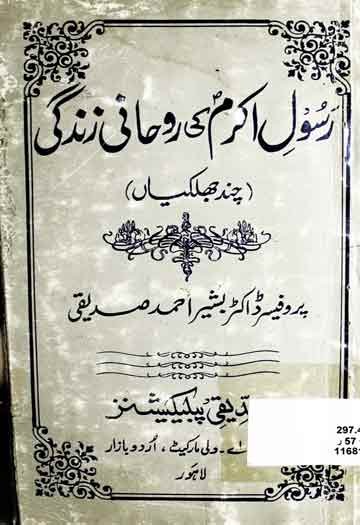 رسولِ اکرمؐ کی روحانی زندگی
(چند جھلکیاں)
پروفیسر ڈاکٹر بشیر احمد صدیقی
صدیقی پبلیکیشنز
اے۔ ولی مارکیٹ، اردو بازار
لاہور
297.4
57 ر
1168